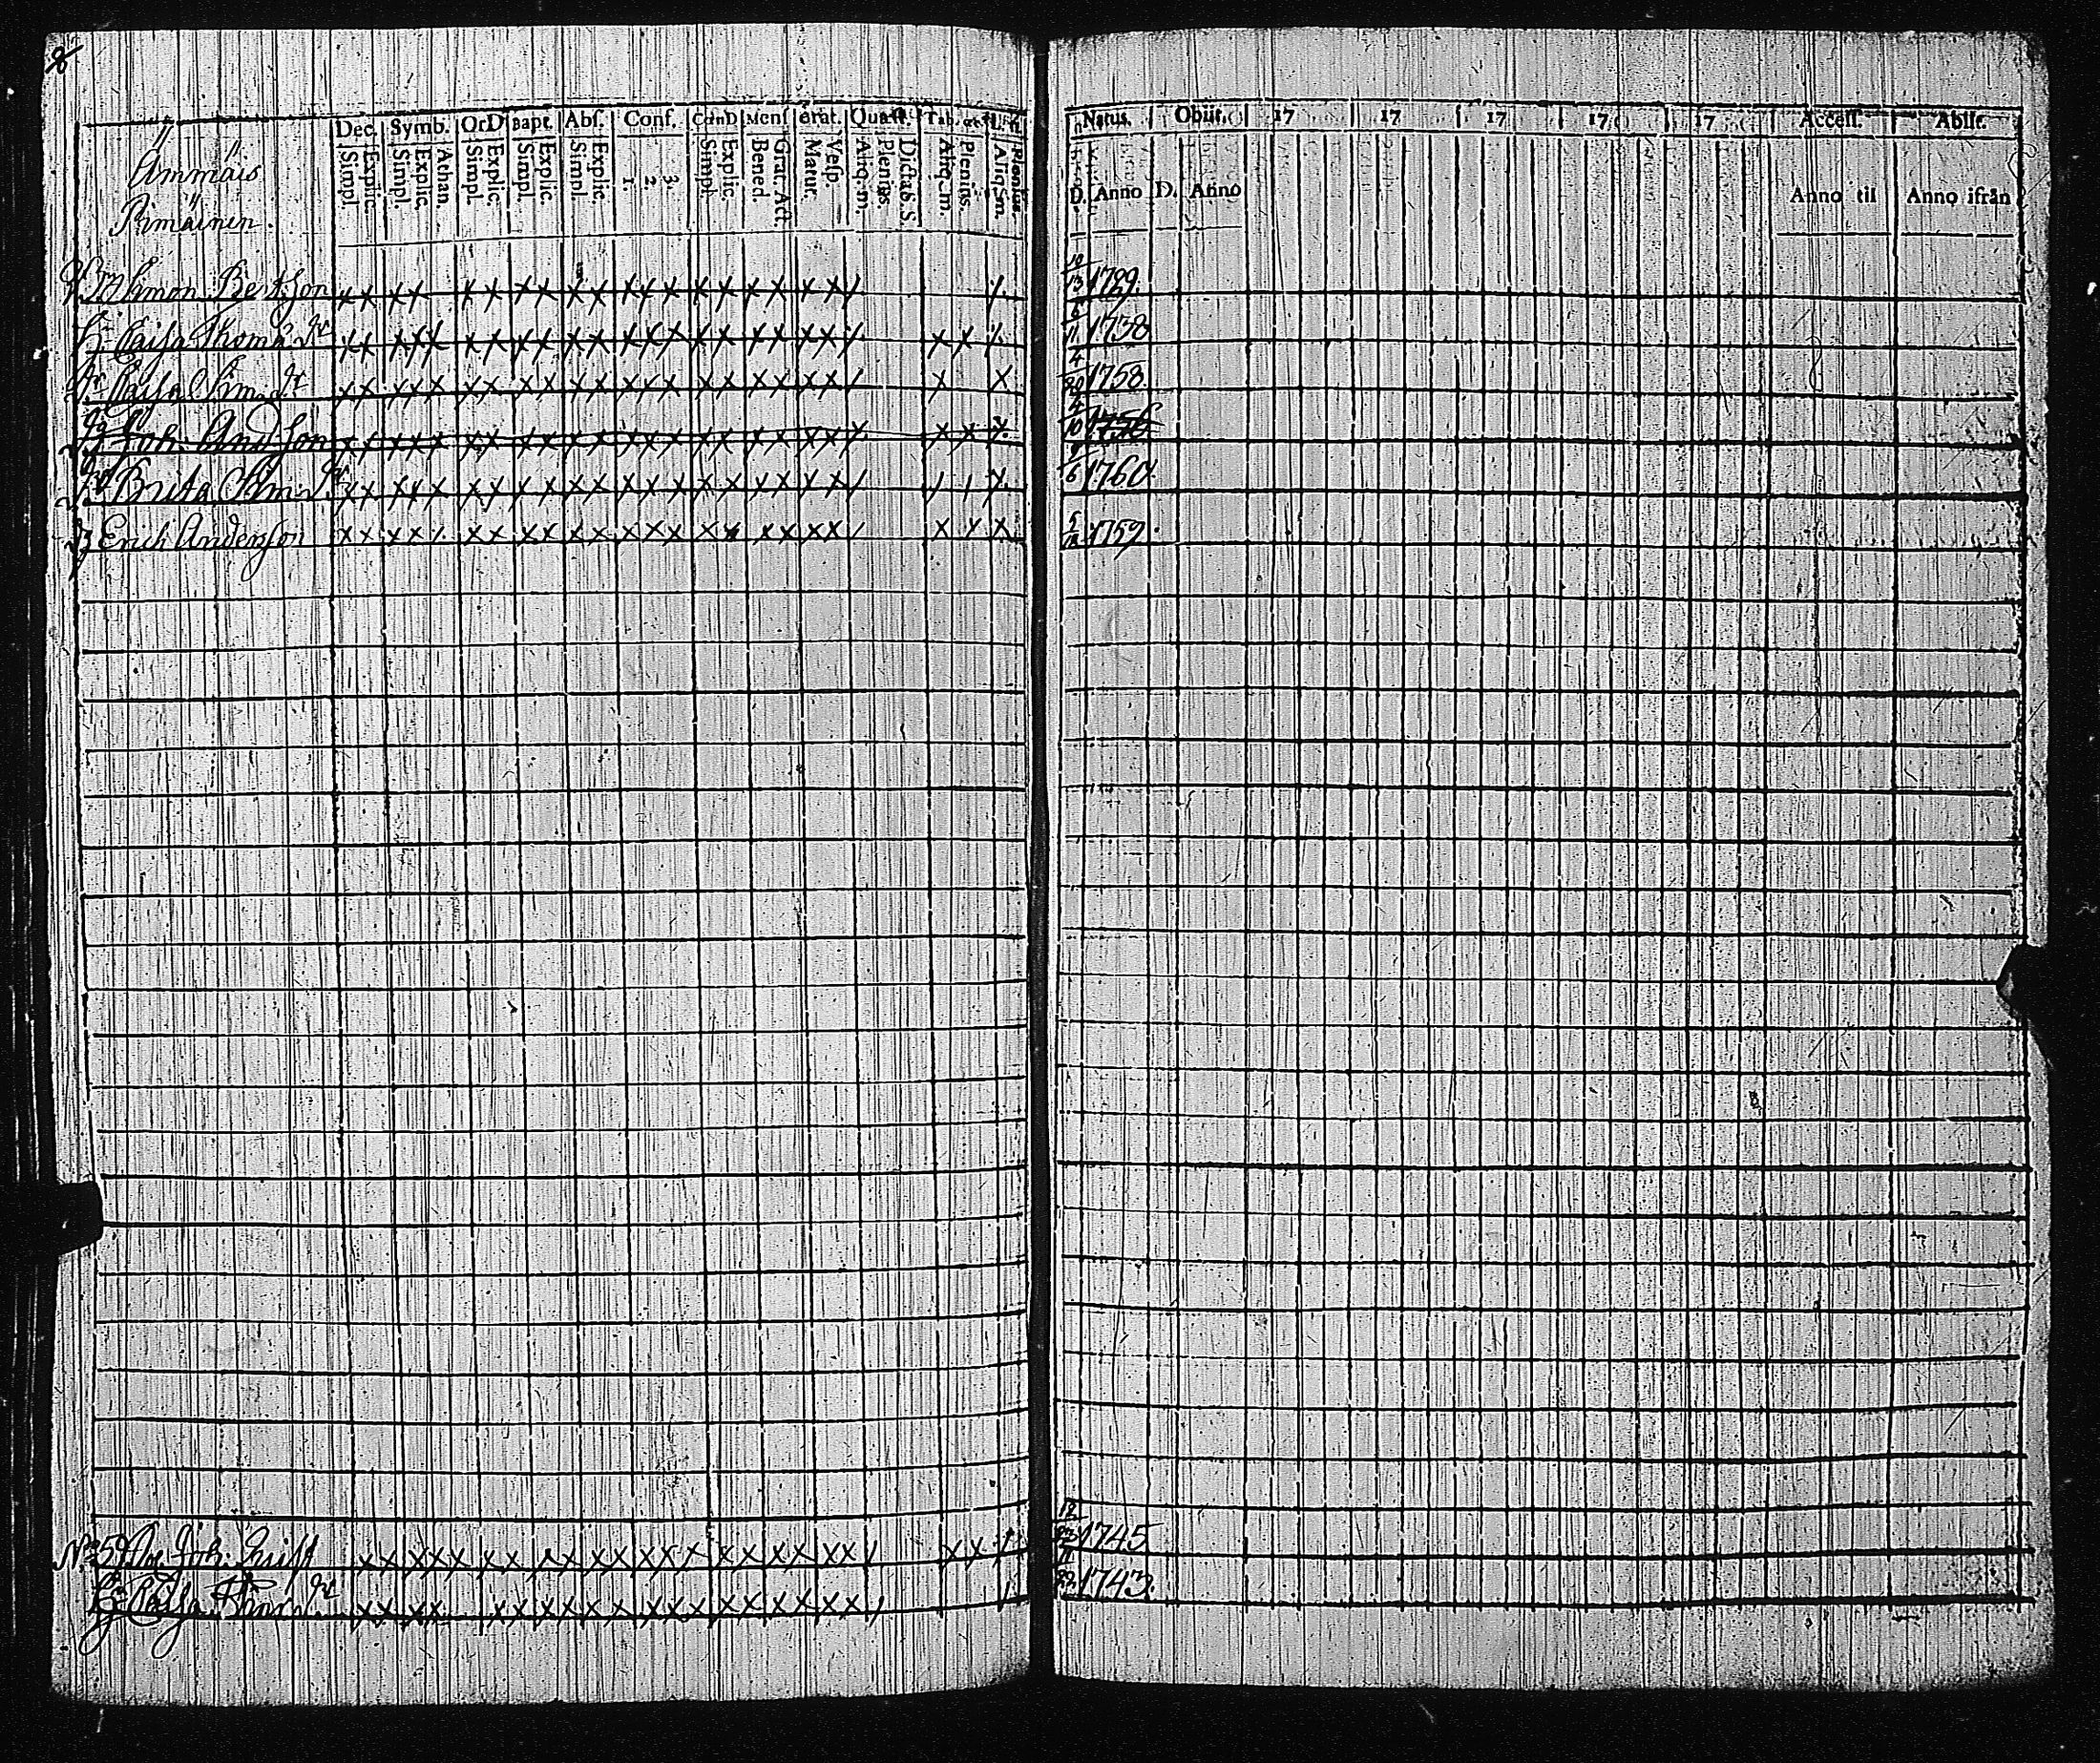 8
Dec. Symb. OrD Bapt. Abs. Conf. CœnD Mens. Orat. Quæst. Tab. L. Natus. Obiit. 17 17 17 17 17 Access. Abiit.
Simpl. Explic. Simpl. Explic. Athan. Simpl. Explic. Simpl. Explic. Simpl. Explic. 1. 2. 3. Simpl. Explic. Bened. Grat. Act. Matut. Vesp. Aliq. m. Plenius. Dicta S. S. Aliq. m. Plenius. Aliq. m. Plenius. D. Anno D. Anno Anno til Anno ifrån
Ämmäis
Pimäinen.
Simon Bertsson x x x x x x x x x x x x x x x x x x x 10/13 1729.
Caisa Thoma dr x x x x x x x x x x x x x x x x x x x x x x 6/11 1738
Caisa Sim. dr x x x x x x x x x x x x x x x x x x x x x 4/20 1758
Joh. Andsson x x x x x x x x x x x x x x x x x x x x x x 4/10 1756
Brita Sim. dr x x x x x x x x x x x x x x x x x x x x 9/6 1760.
Erich Andersson x x x x x x x x x x x x x x x x x x x x x x 5/12 1759.
No 59 Joh. x x x x x x x x x x x x x x x x x x x x x 12/23 1745
Caisa x x x x x x x x x x x x x x x x x x 11/22 1743.